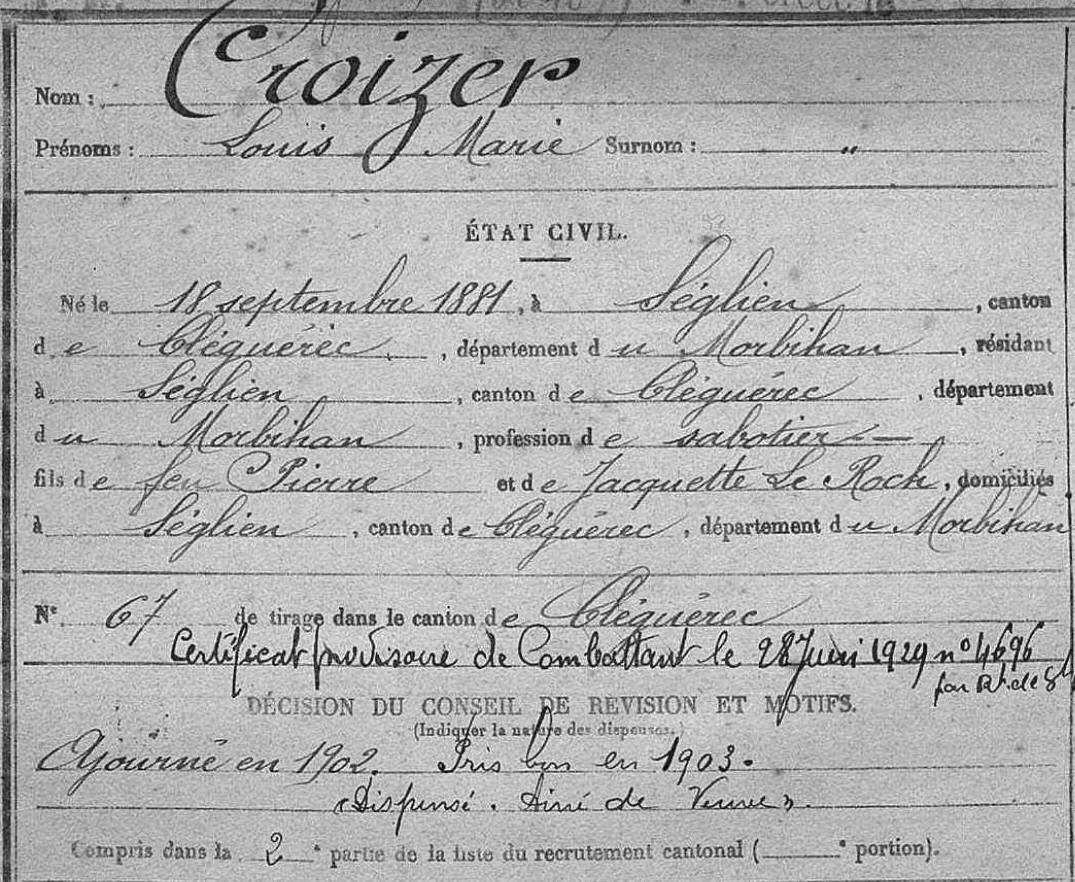 Nom : Croizer
Prénoms : Louis Marie Surnom : "
ÉTAT CIVIL.
Né le 18 septembre 1881, à Séglien, canton
de Cléguérec, département du Morbihan, résidant
à Séglien, canton de Cléguérec, département
du Morbihan, profession de sabotier
fils de feu Pierre et de Jacquette Le Roch, domiciliés
à Séglien, canton de Cléguérec, département du Morbihan
N° 67 de tirage dans le canton de Cléguérec
Certificat provisoire de Combattant le 28 Juin 1929 n° 4696
par
DÉCISION DU CONSEIL DE REVISION ET MOTIFS.
(Indiquer la nature des dispenses.)
Ajourné en 1902. Pris bon en 1903.
"Dispensé. Ainé de Veuve".
Compris dans la 2e partie de la liste du recrutement cantonal ( e portion).